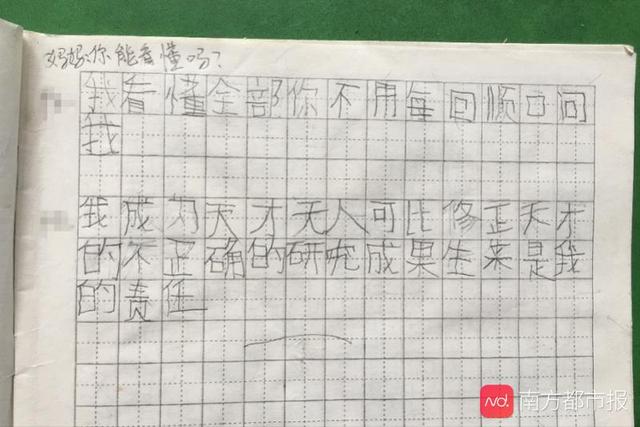 妈妈:你能看懂吗?
我看懂全部你不用每回顺口问
我
我成为天才无人可比修正天才
的不正确的研究成果生来是我
的责任
Nd. 南方都市报